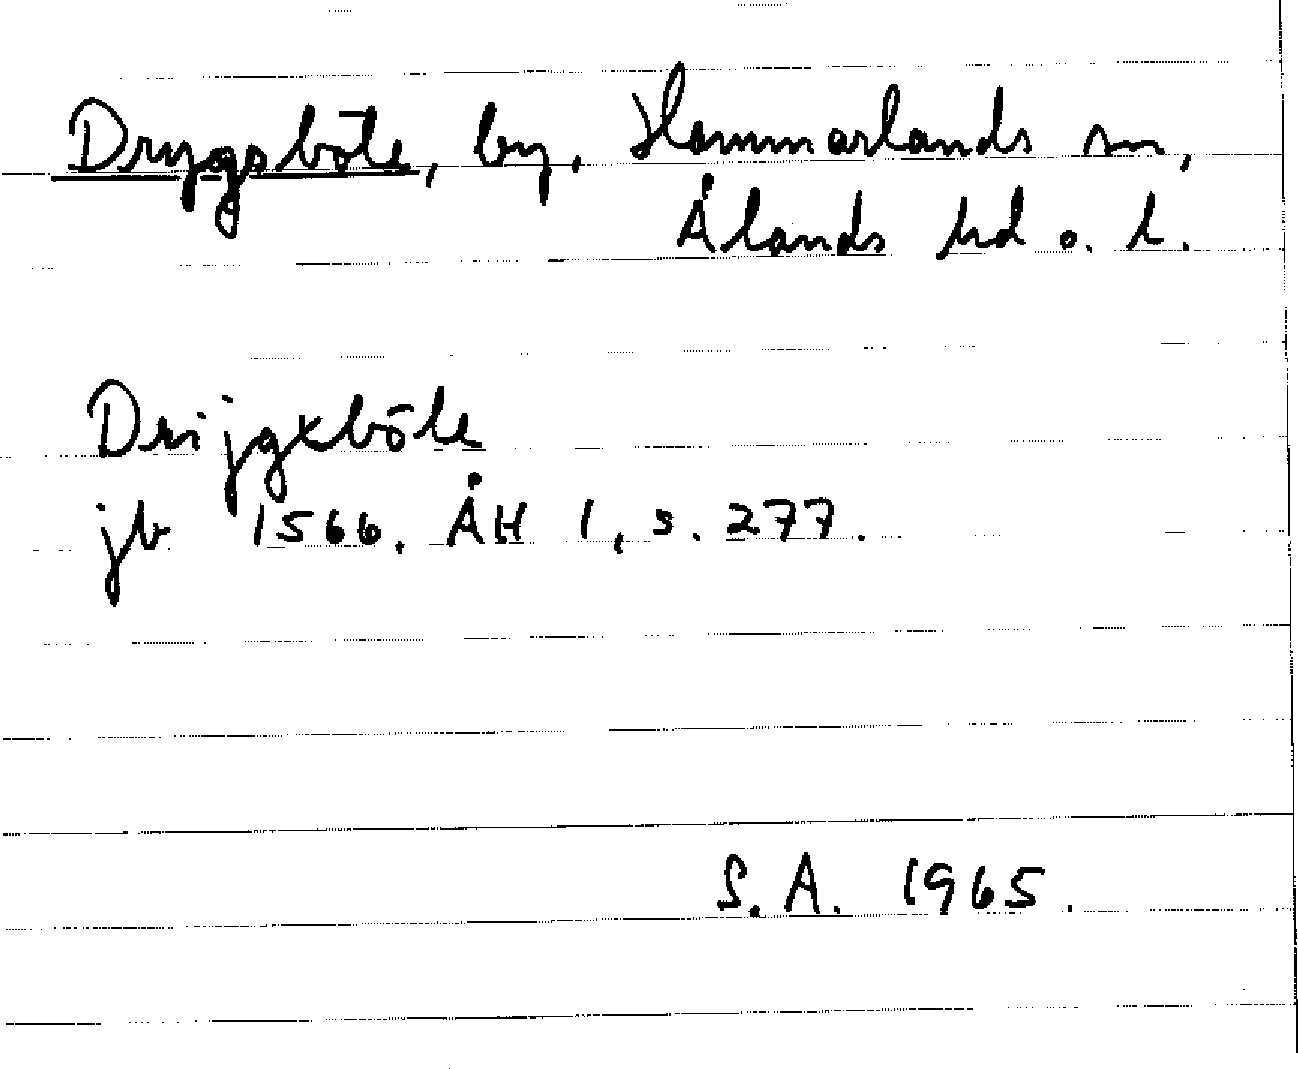 Drygsböle, by, Hammarlands sn,
Ålands hd o. l.
Drijgxböle
jb 1566. ÅH 1, s. 277.
S.A. 1965.